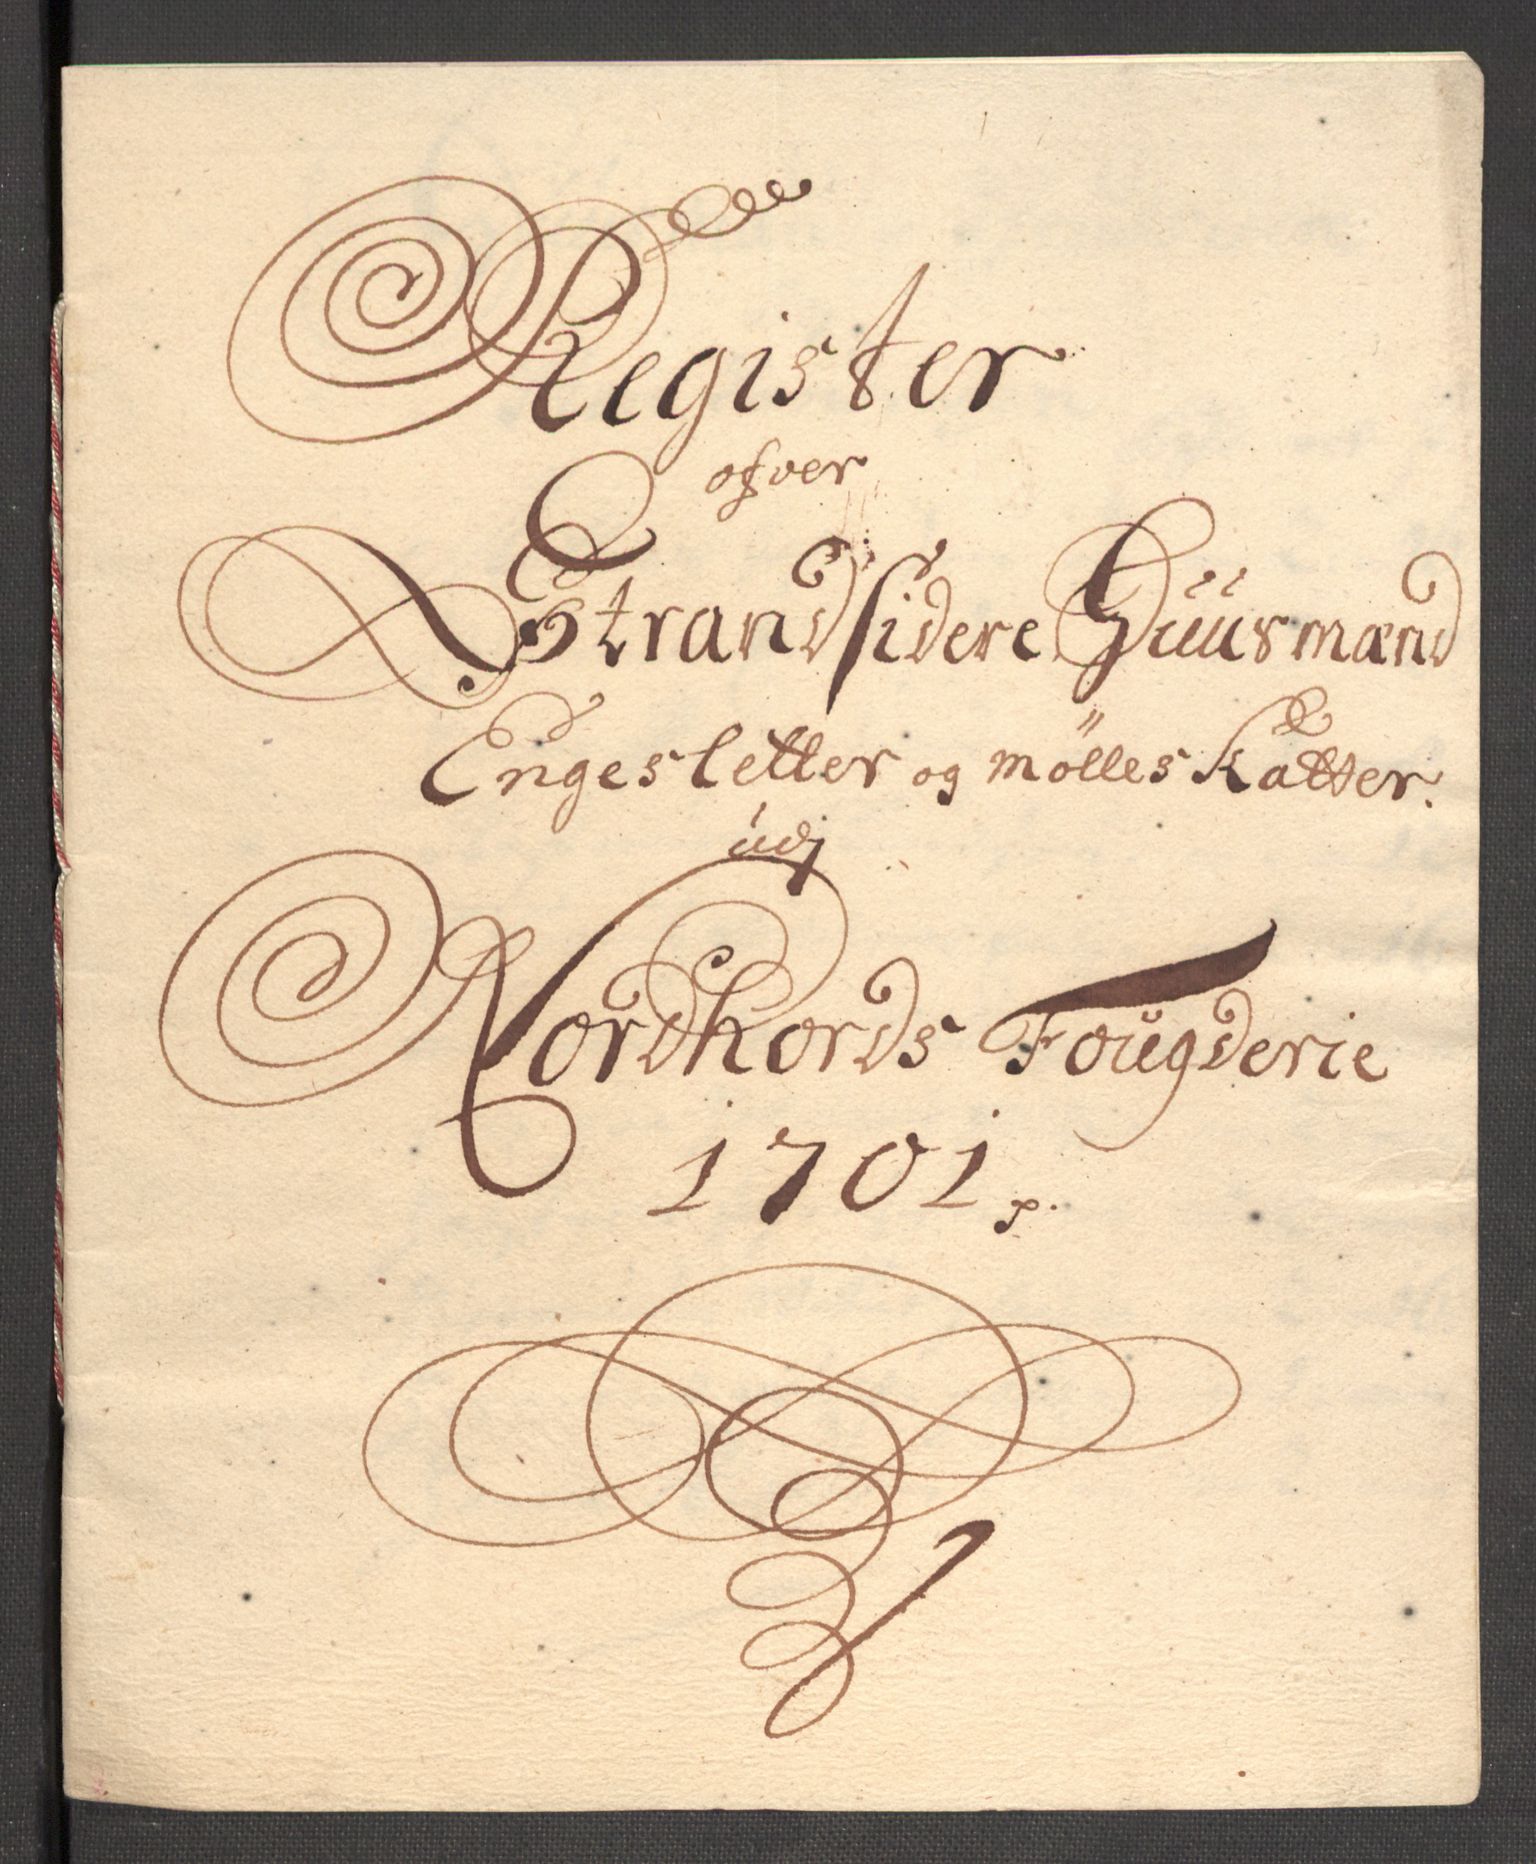 Register
ofver
Strandsidere Huusmænd
Engesletter og mölles katter.
udj
Nordhords Fougderie
1701